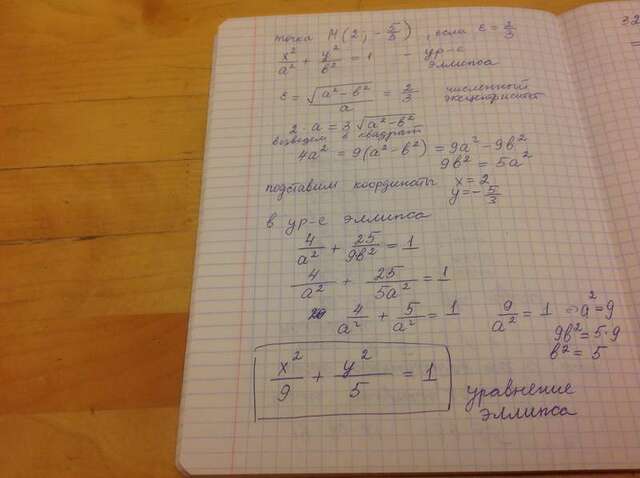 точка M(2; -5/3), если ε = 2/3
x²/a² + y²/b² = 1 - ур-е эллипса
ε = √(a²-b²)/a = 2/3 численный эксцентриситет
2·a = 3√(a²-b²)
возведем в квадрат
4a² = 9(a²-b²) = 9a² - 9b²
9b² = 5a²
подставим координаты x=2
y=-5/3
в ур-е эллипса
4/a² + 25/9b² = 1
4/a² + 25/5a² = 1
4/a² + 5/a² = 1 9/a² = 1 ⇒ a² = 9
9b² = 5·9
b² = 5
x²/9 + y²/5 = 1
уравнение
эллипса
32